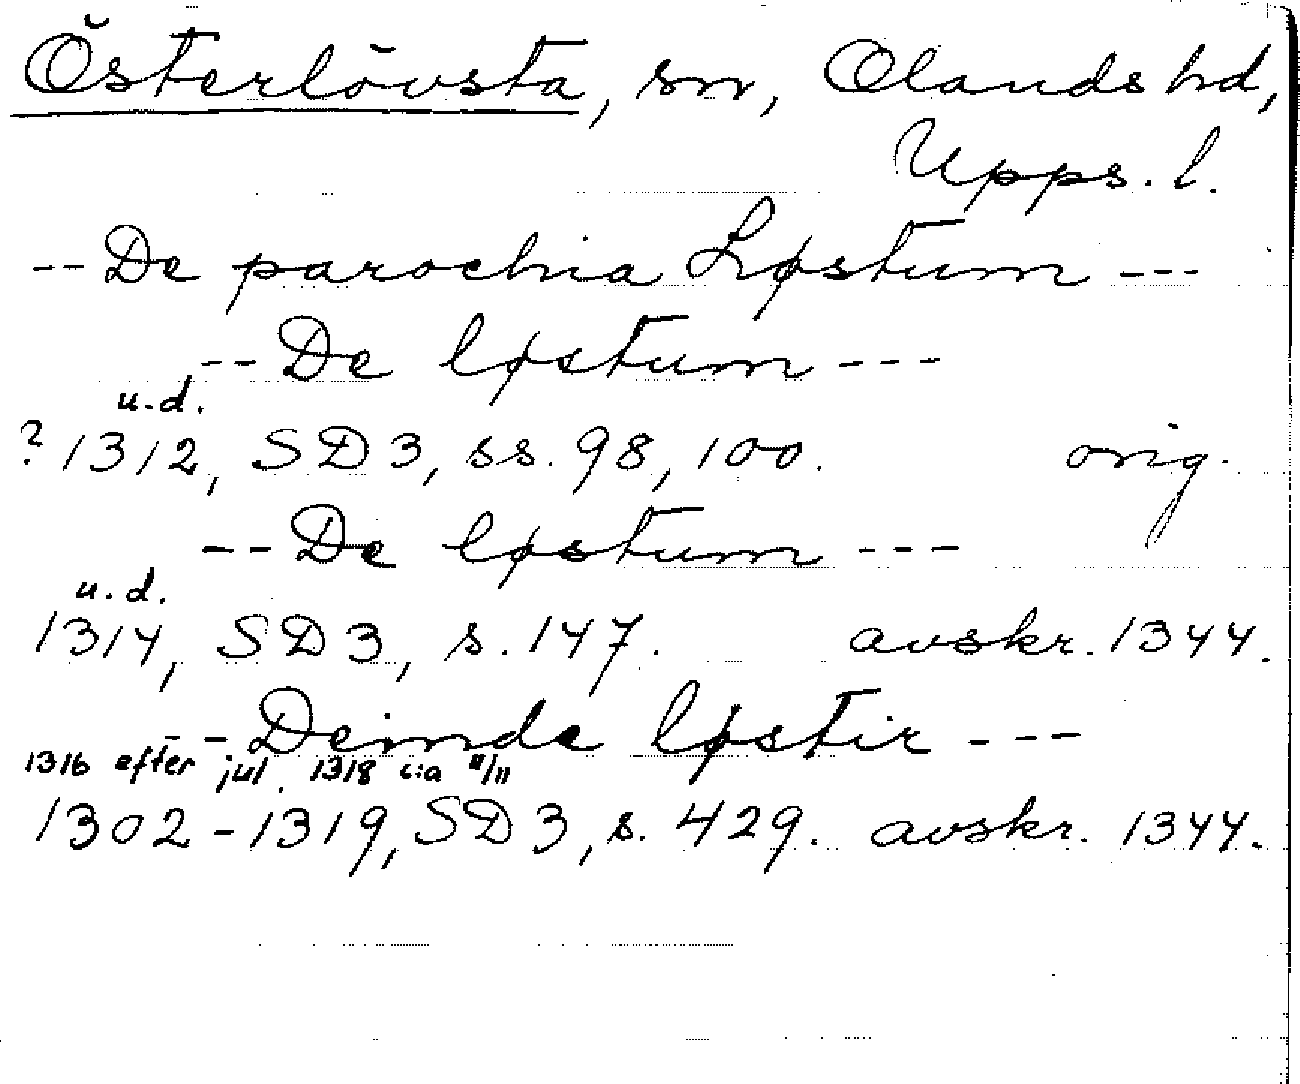 Österlövsta, sn, Olands hd,
Upps. l.
-- De parochia Løstum ---
-- De løstum ---
u.d.
? 1312, SD 3, ss. 98, 100. orig.
-- De løstum ---
u.d.
1314, SD 3, s. 147. avskr. 1344.
-- Deinde løstir ---
1316 efter jul. 1318 c:a 11/11
1302-1319, SD 3, s. 429. avskr. 1344.